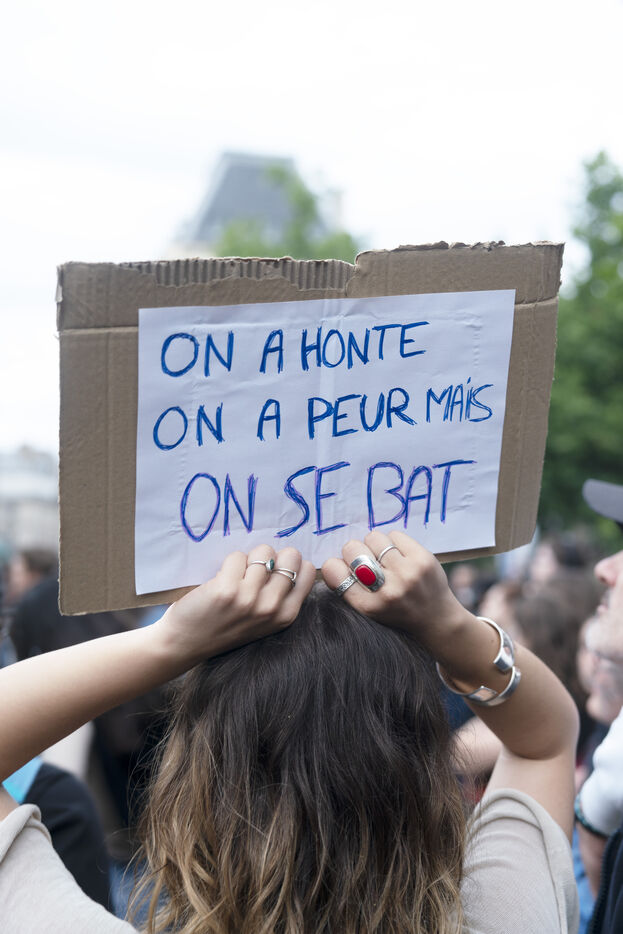 ON A HONTE
ON A PEUR MAIS
ON SE BAT